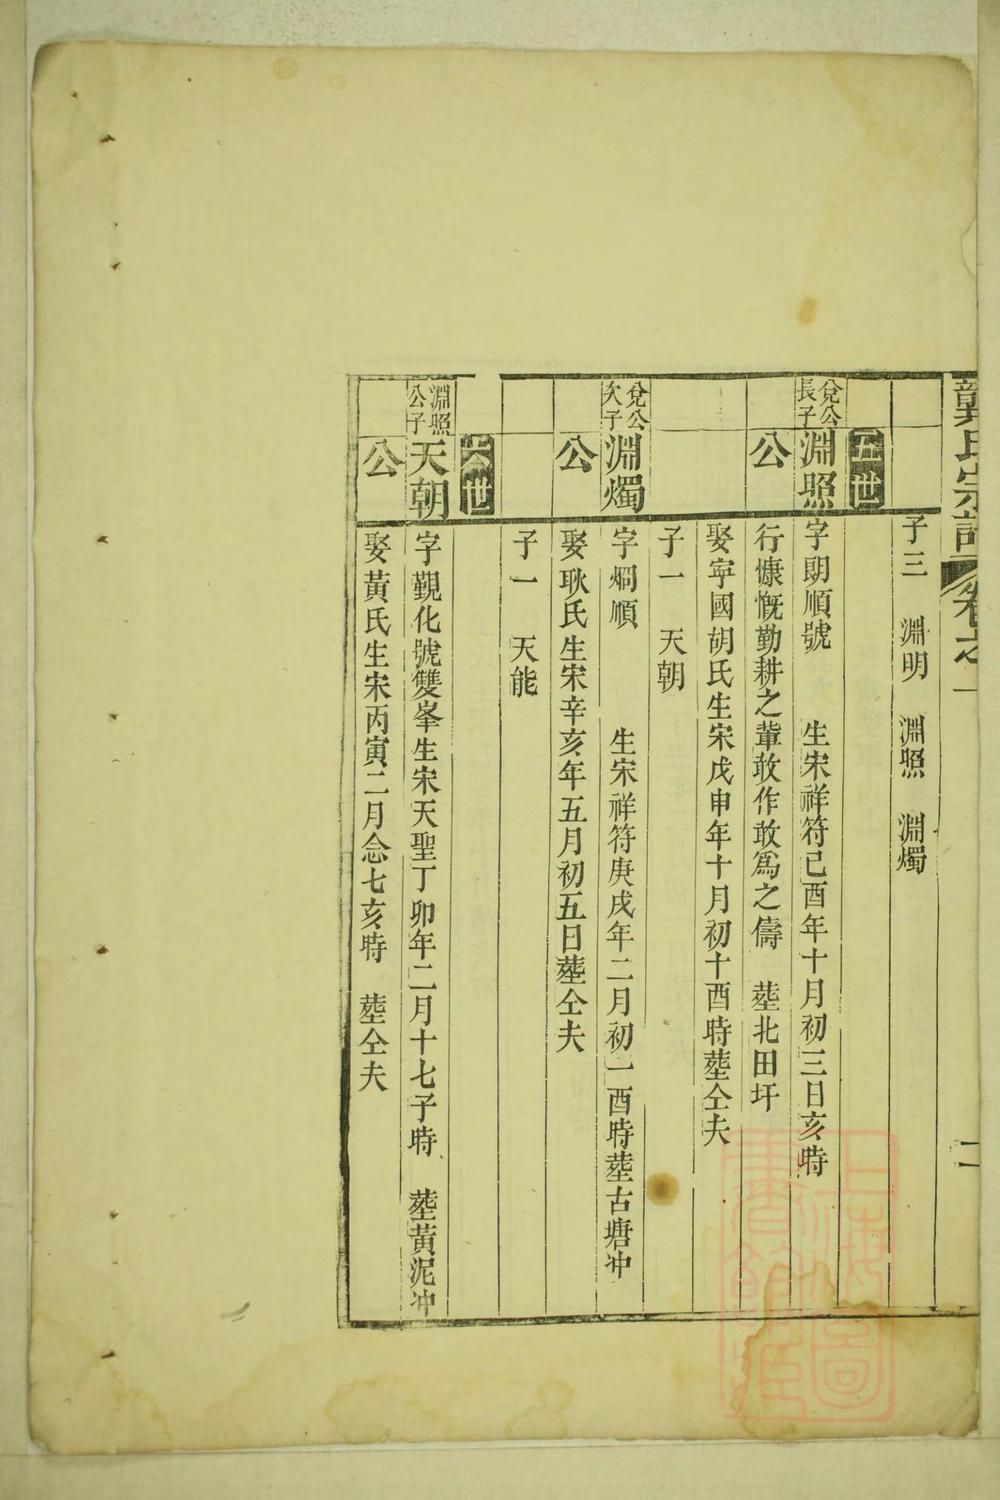 龔氏宗譜 卷之一 二
子三 淵明 淵照 淵燭
五世
兌公長子 淵照公
字朗順號 生宋祥符己酉年十月初三日亥時
行慷慨勤耕之輩敢作敢爲之儔 塟北田圩
娶寧國胡氏生宋戊申年十月初十酉時塟仝夫
子一 天朝
兌公次子 淵燭公
字烱順 生宋祥符庚戌年二月初一酉時塟古塘冲
娶耿氏生宋辛亥年五月初五日塟仝夫
子一 天能
六世
淵照公子 天朝公
字觀化號雙峯生宋天聖丁卯年二月十七子時 塟黃泥冲
娶黃氏生宋丙寅二月念七亥時 塟仝夫
上海圖書館藏